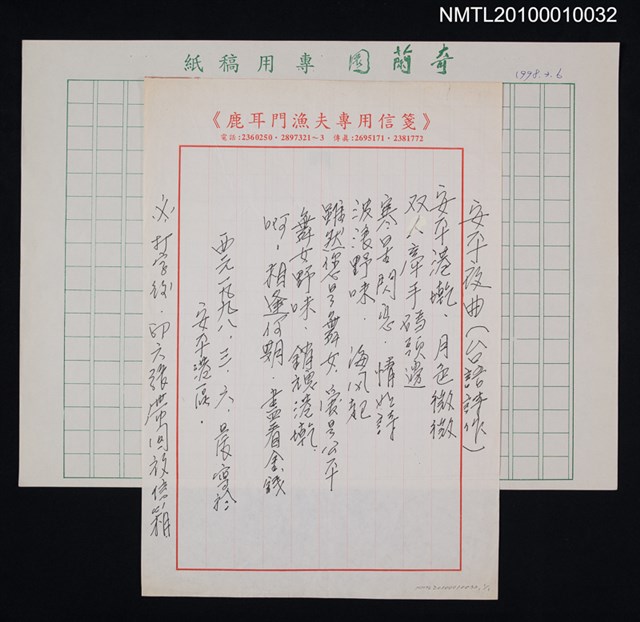 NMTL20100010032
奇蘭園專用稿紙
1998.3.6
《鹿耳門漁夫專用信箋》
電話:2360250・2897321~3 傳真:2695171・2381772
安平夜曲(台語詩作)
安平港墘,月色微微
双人牽手碼頭邊
寒星閃恋,情如詩
波浪野味,海風起
雖然您是舞女,我是公平
舞女野味,銷魂港墘,
啊,相逢何期,盡看金錢
西元一九九八.三.六.晨寫於
安平港區.
打字後.印六張